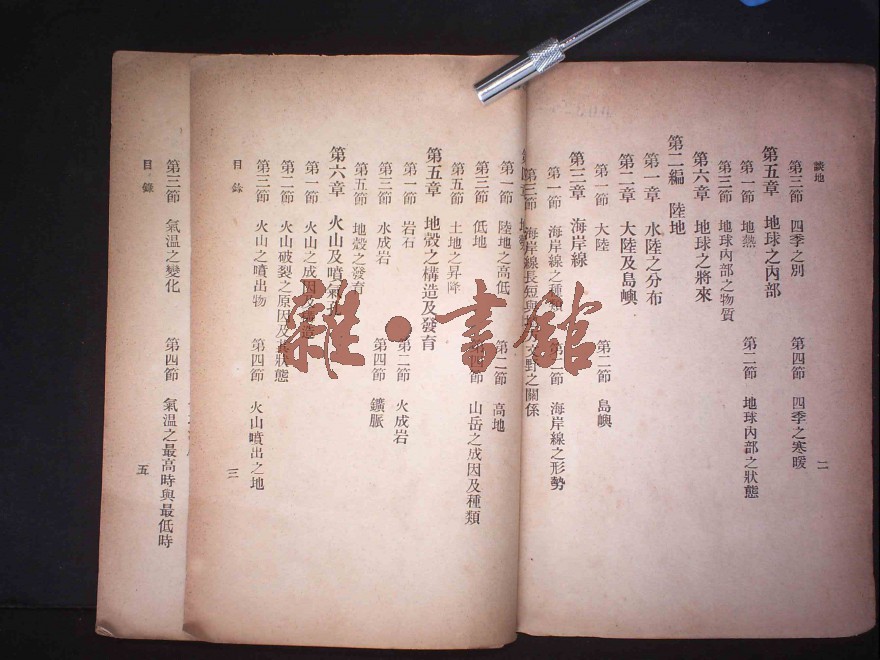 談地
第三節　四季之別　第四節　四季之寒暖
第五章　地球之內部
第一節　地熱　第二節　地球內部之狀態
第三節　地球內部之物質
第六章　地球之將來
第二編　陸地
第一章　水陸之分布
第二章　大陸及島嶼
第一節　大陸　第二節　島嶼
第三章　海岸線
第一節　海岸線之種類　第二節　海岸線之形勢
第三節　海岸線長短與　文野之關係
二
第一節　陸地之高低　第二節　高地
第三節　低地　第四節　山岳之成因及種類
第五節　土地之昇降
第五章　地殼之構造及發育
第一節　岩石　第二節　火成岩
第三節　水成岩　第四節　鑛脈
第五節　地殼之發育
第六章　火山及噴氣孔
第一節　火山之成因及
第二節　火山破裂之原因及其狀態
第三節　火山之噴出物　第四節　火山噴出之地
目錄
三
第三節　氣溫之變化　第四節　氣溫之最高時與最低時
目錄
五
雜·書館